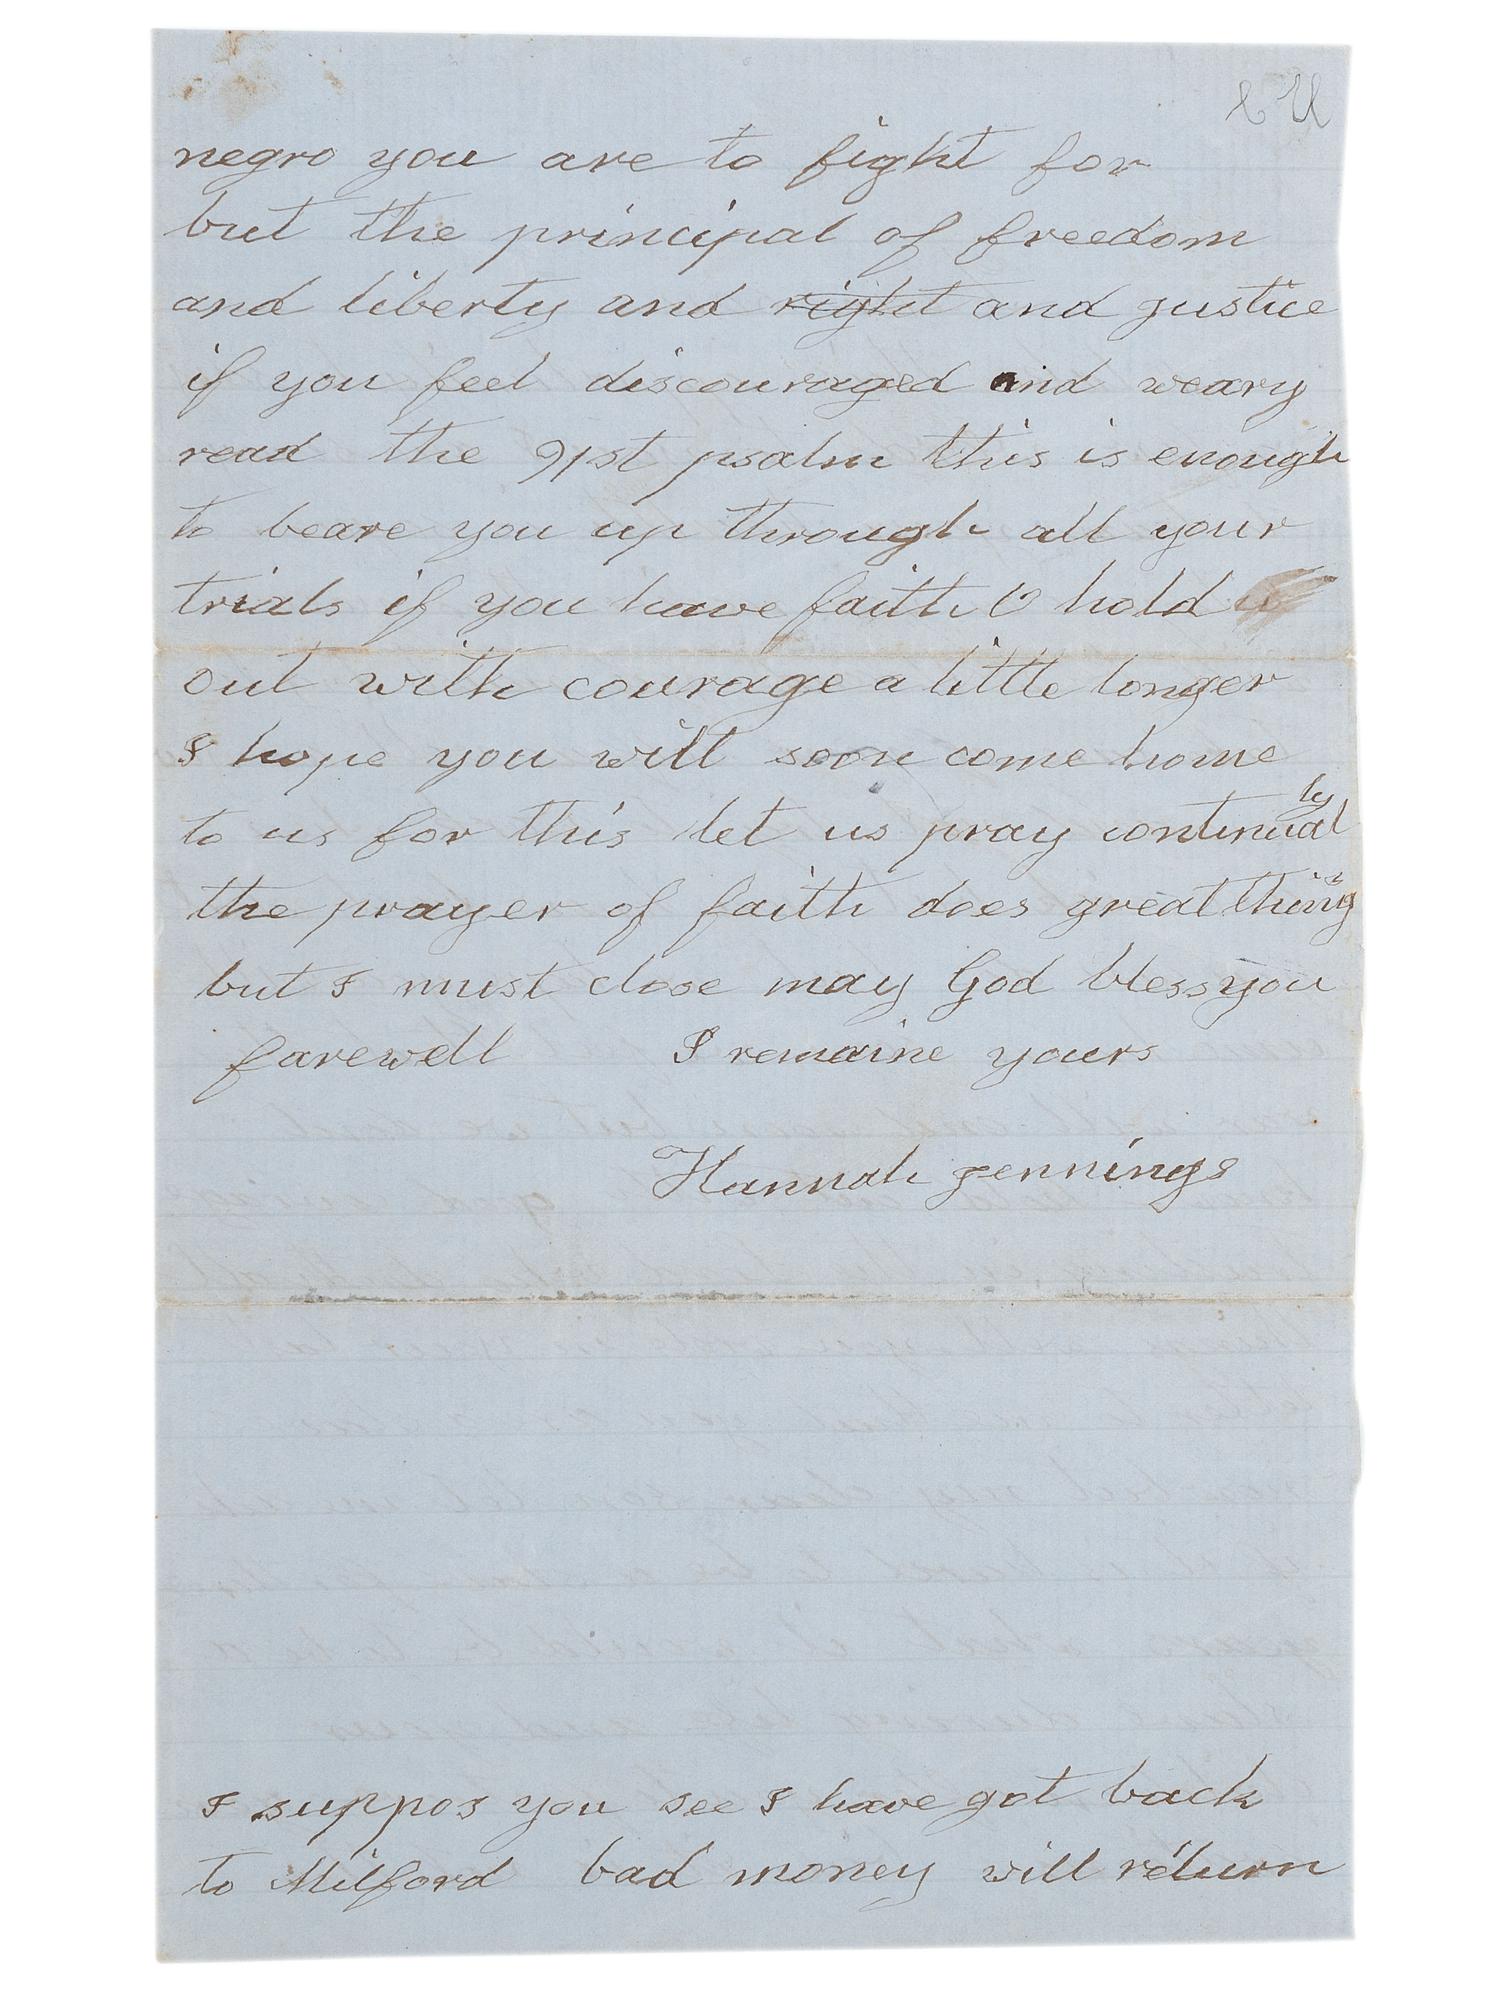 negro you are to fight for
but the principal of freedom
and liberty and right and justice
if you feel discouraged and weary
read the 91st psalm this is enough
to beare you up through all your
trials if you have faith O hold
out with courage a little longer
I hope you will soon come home
to us for this let us pray continually
the prayer of faith does great things
but I must close may God bless you
farewell I remaine yours
Hannah Jennings
I suppos you see I have got back
to Milford bad money will return